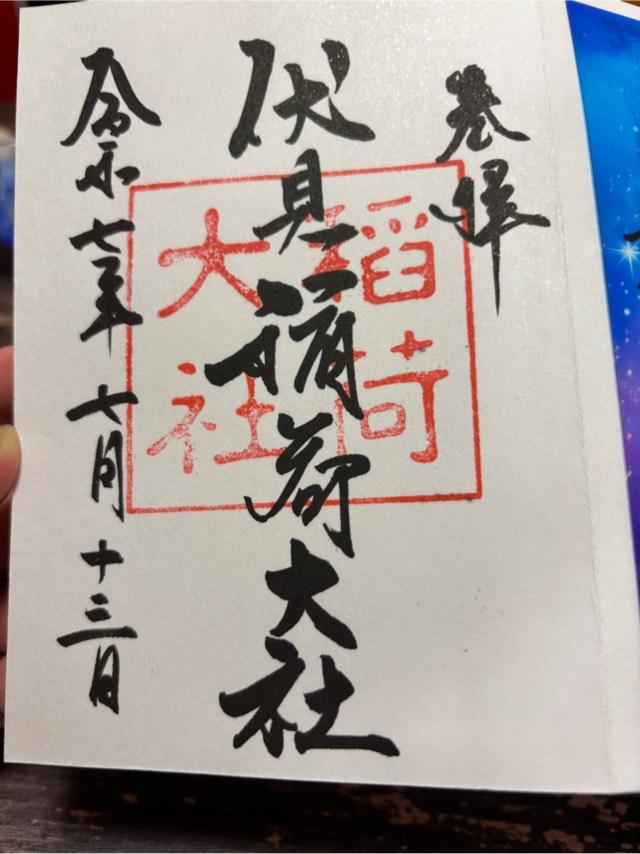 奉拝
伏見稲荷大社
稲荷
大社
令和七年七月十三日